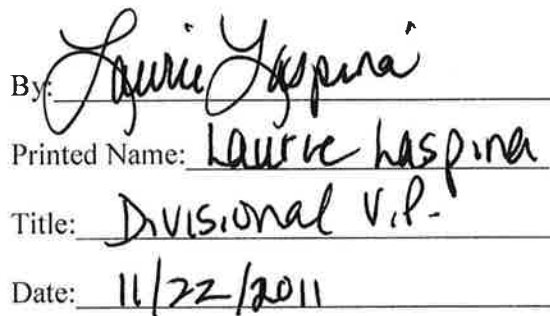 By: Laurie Laspina
Printed Name: Laurie Laspina
Title: Divisional V.P.
Date: 11/22/2011